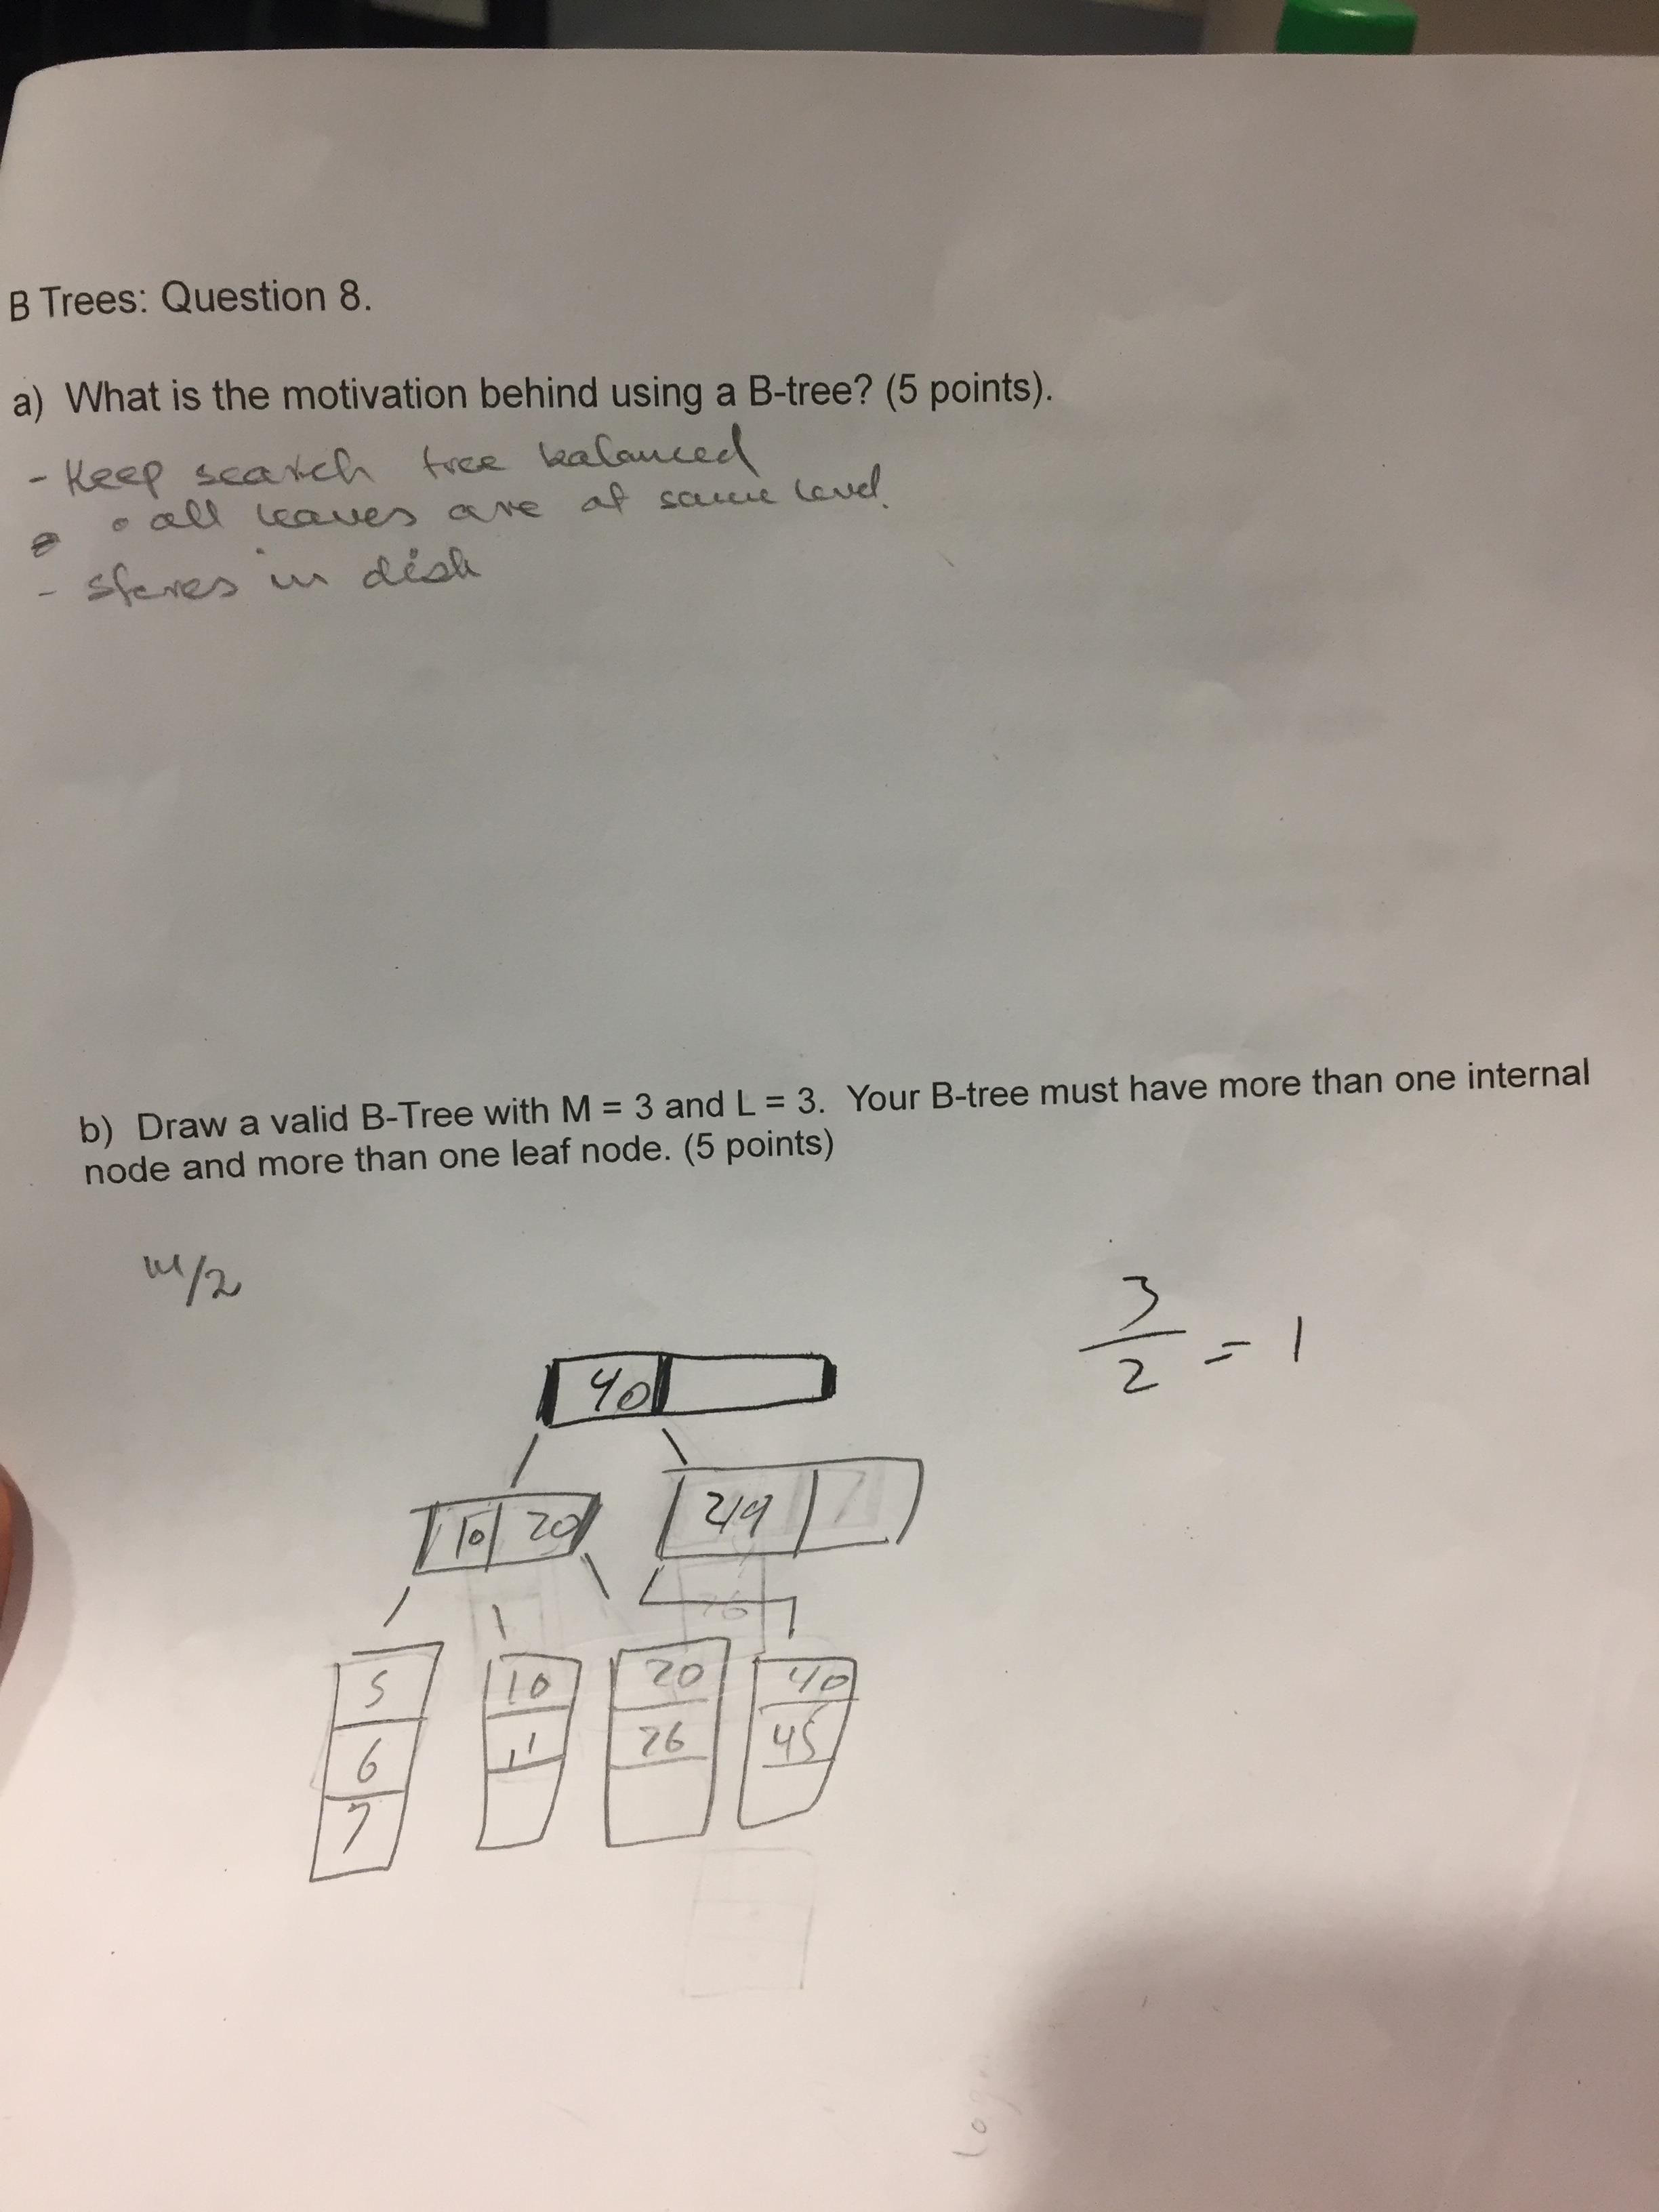 B Trees: Question 8.
a) What is the motivation behind using a B-tree? (5 points).
- Keep search tree balanced
• all leaves are at same level.
- stores in disk
b) Draw a valid B-Tree with M = 3 and L = 3. Your B-tree must have more than one internal
node and more than one leaf node. (5 points)
M/2
3/2 = 1
40
10 20
5 10 20 40
6 11 26 45
7